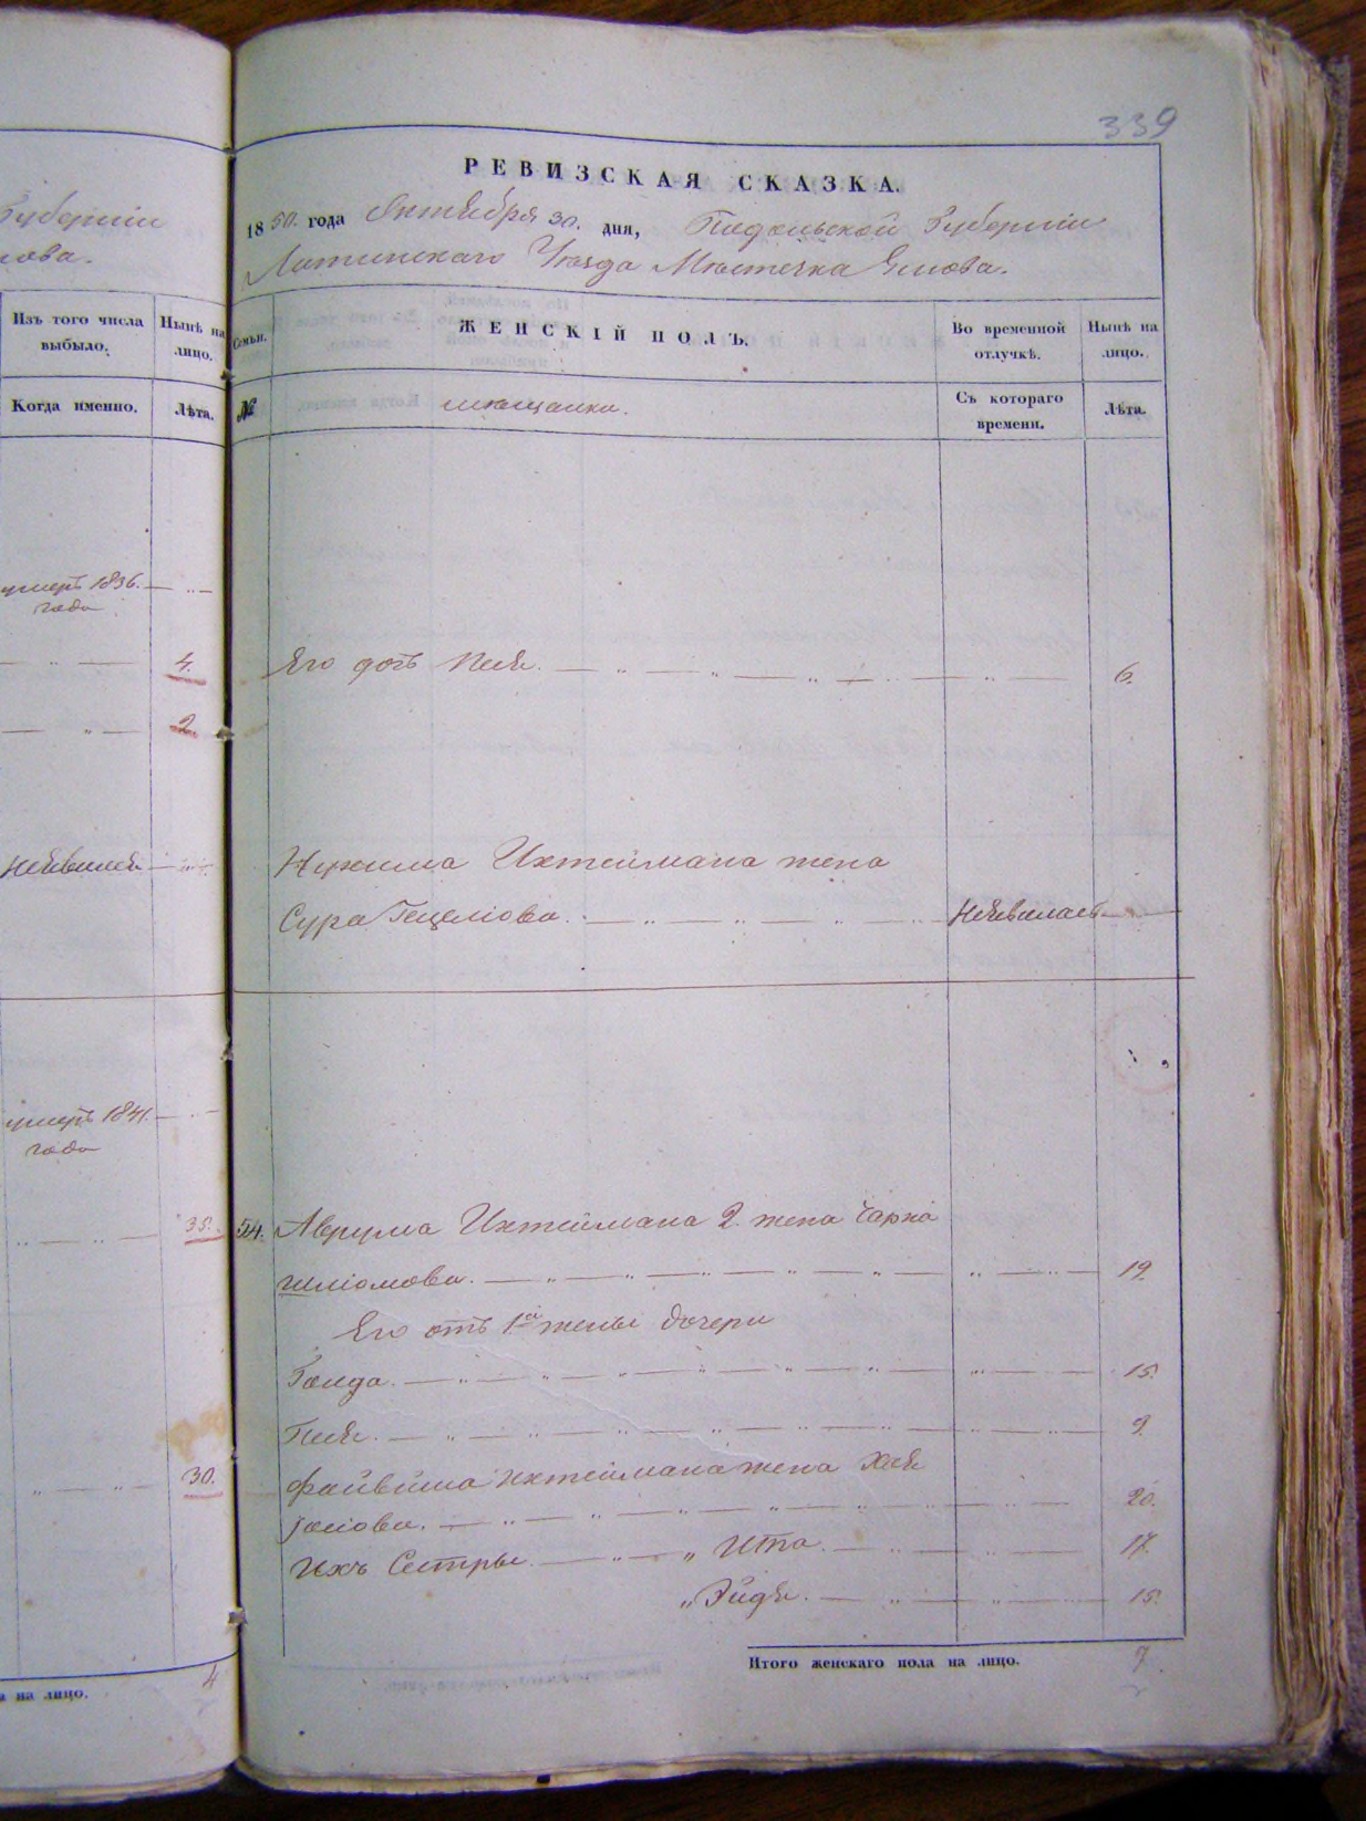 339
РЕВИЗСКАЯ СКАЗКА.
1850. года Октября 30. дня, Подольской Губерніи
Литинскаго Уѣзда Мѣстечка Янова.
Губерніи
нова.
Изъ того числа выбыло.
Нынѣ на лицо.
Когда именно.
Лѣта.
умеръ 1836. года
4.
2.
Неявился
умеръ 1841. года
35.
30.
4
на лицо.
Семьи.
ЖЕНСКІЙ ПОЛЪ.
Во временной отлучкѣ.
Нынѣ на лицо.
№
мѣщанки.
Съ котораго времени.
Лѣта.
Его дочь Пея. 6.
Нухима Ихтеймана жена
Сура Гецеліова. Неявилась
54. Аврума Ихтеймана 2. жена Чарна
Шліомова. 19.
Его отъ 1й жены дочери
Голда. 15.
Пея. 9.
Файвиша Ихтеймана жена Хая
20.
Ихъ Сестры " Ита. 17.
" Эйдя. 15.
Итого женскаго пола на лицо. 7